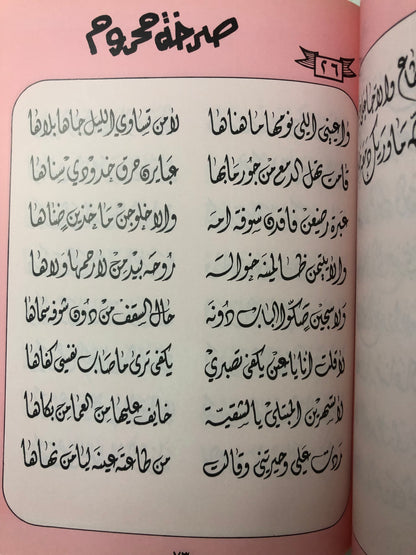 صرخة محروم
٢٦
واعيني اللي نومها ما هناها لا من تساوي الليل جاها بلاها
قامت تهل الدمع من جور ما بها عبايرن حرق خدودي سناها
عبرة رضيعن فاقدن شوفة امه والا خلوجن ماخذين ضناها
والا يتيمن ظالمينه خواله روحه بيد من لا رحمها ولاها
ولا سجين صكوا الباب دونه حال السقف من دون شوفه سماها
لا قلت انا يا عين يكفي تصبري يكفي ترى ما صاب نفسي كفاها
لا تسهرين المبتلي يالشقية خايف عليها من العما من بكاها
ردت علي وحيرتني وقالت من طاعته عينه ليا من نهاها